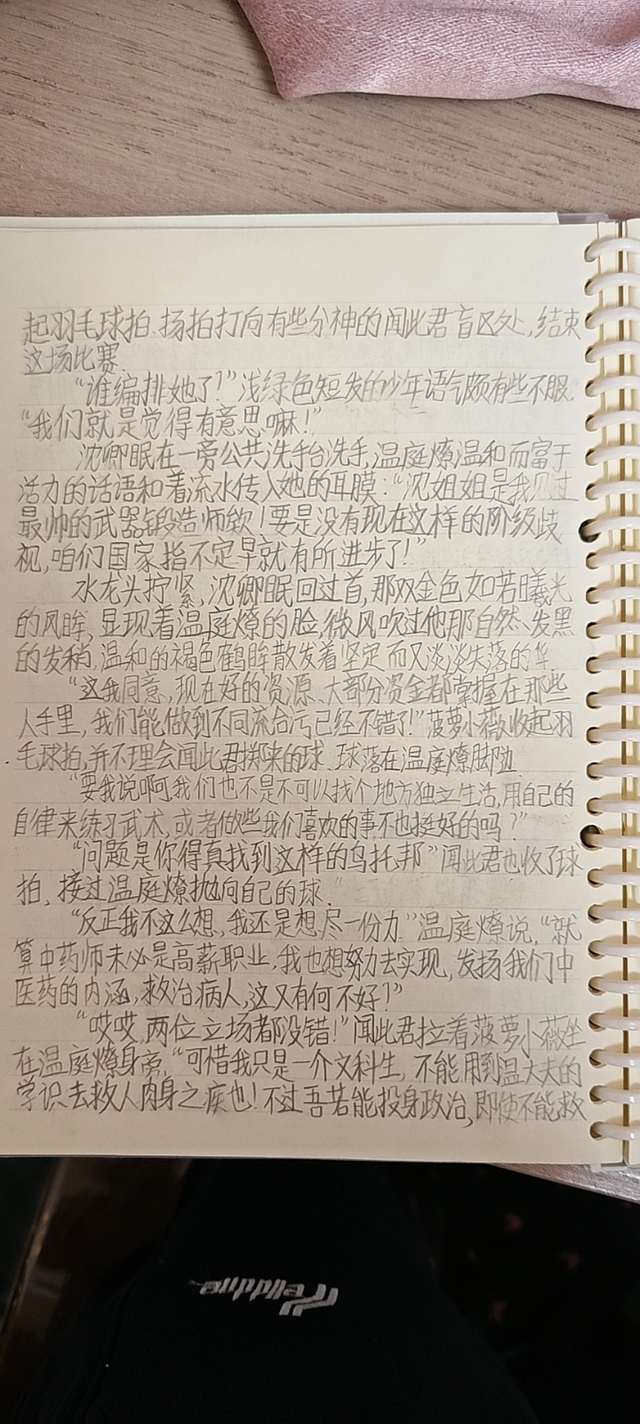 起羽毛球拍、扬拍打向有些分神的闻此君盲区处,结束
这场比赛.
“谁编排她了!”浅绿色短发的少年语气颇有些不服.
“我们就是觉得有意思嘛!”
沈卿眠在一旁公共洗手台洗手,温庭燎温和而富于
活力的话语和着流水传入她的耳膜:“沈姐姐是我见过
最帅的武器锻造师欸!要是没有现在这样的阶级歧
视,咱们国家指不定早就有所进步了!”
水龙头拧紧,沈卿眠回过首,那双金色如若曦光
的凤眸,显现着温庭燎的脸,微风吹过他那自然、发黑
的发稍,温和的褐色鹤眸散发着坚定而又淡淡失落的华.
“这我同意,现在好的资源、大部分资金都掌握在那些
人手里,我们能做到不同流合污已经不错了!”菠萝小薇收起羽
毛球拍,并不理会闻此君掷来的球.球落在温庭燎脚边
“要我说啊,我们也不是不可以找个地方独立生活,用自己的
自律来练习武术,或者做些我们喜欢的事不也挺好的吗?”
“问题是你得真找到这样的乌托邦”闻此君也收了球
拍,接过温庭燎抛向自己的球.
“反正我不这么想,我还是想尽一份力.”温庭燎说,“就
算中药师未必是高薪职业,我也想努力去实现,发扬我们中
医药的内涵,救治病人,这又有何不好?”
“哎哎,两位立场都没错!”闻此君拉着菠萝小薇坐
在温庭燎身旁,“可惜我只是一个文科生,不能用到温大夫的
学识去救人肉身之疾也!不过吾若能投身政治,即使不能救